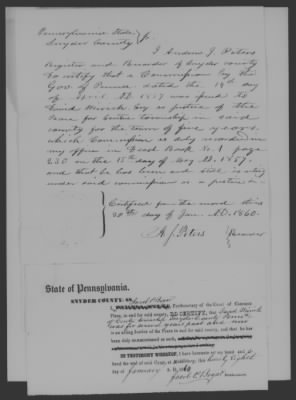 Pennsylvania State
Snyder County
I Andrew J. Peters
Register and Recorder of Snyder county
Certify that a Commission by the
Gov. of Penna. dated the 18th day
of April A.D. 1857 was issued to
Esq as justice of the
Peace for Centre Township in said
county for the term of five years
which Commission is duly recorded in
my office in Deed Book No. 1 page
230 on the 15th day of May A.D. 1857.
and that he has been and still is acting
under said commission as a justice
Certified from the record this
20th day of Jan. A.D. 1860.
A J Peters
Recorder
State of Pennsylvania.
SNYDER COUNTY, SS.
Prothonotary of the Court of Common
Pleas, in and for said county, DO CERTIFY, that
is an acting Justice of the Peace in and for said county, and that he has
been duly commissioned as such,
IN TESTIMONY WHEREOF, I have hereunto set my hand and
the seal of said Court, at Middleburg, this twenty eighth
day of January A. D. 1860
Prothonotary